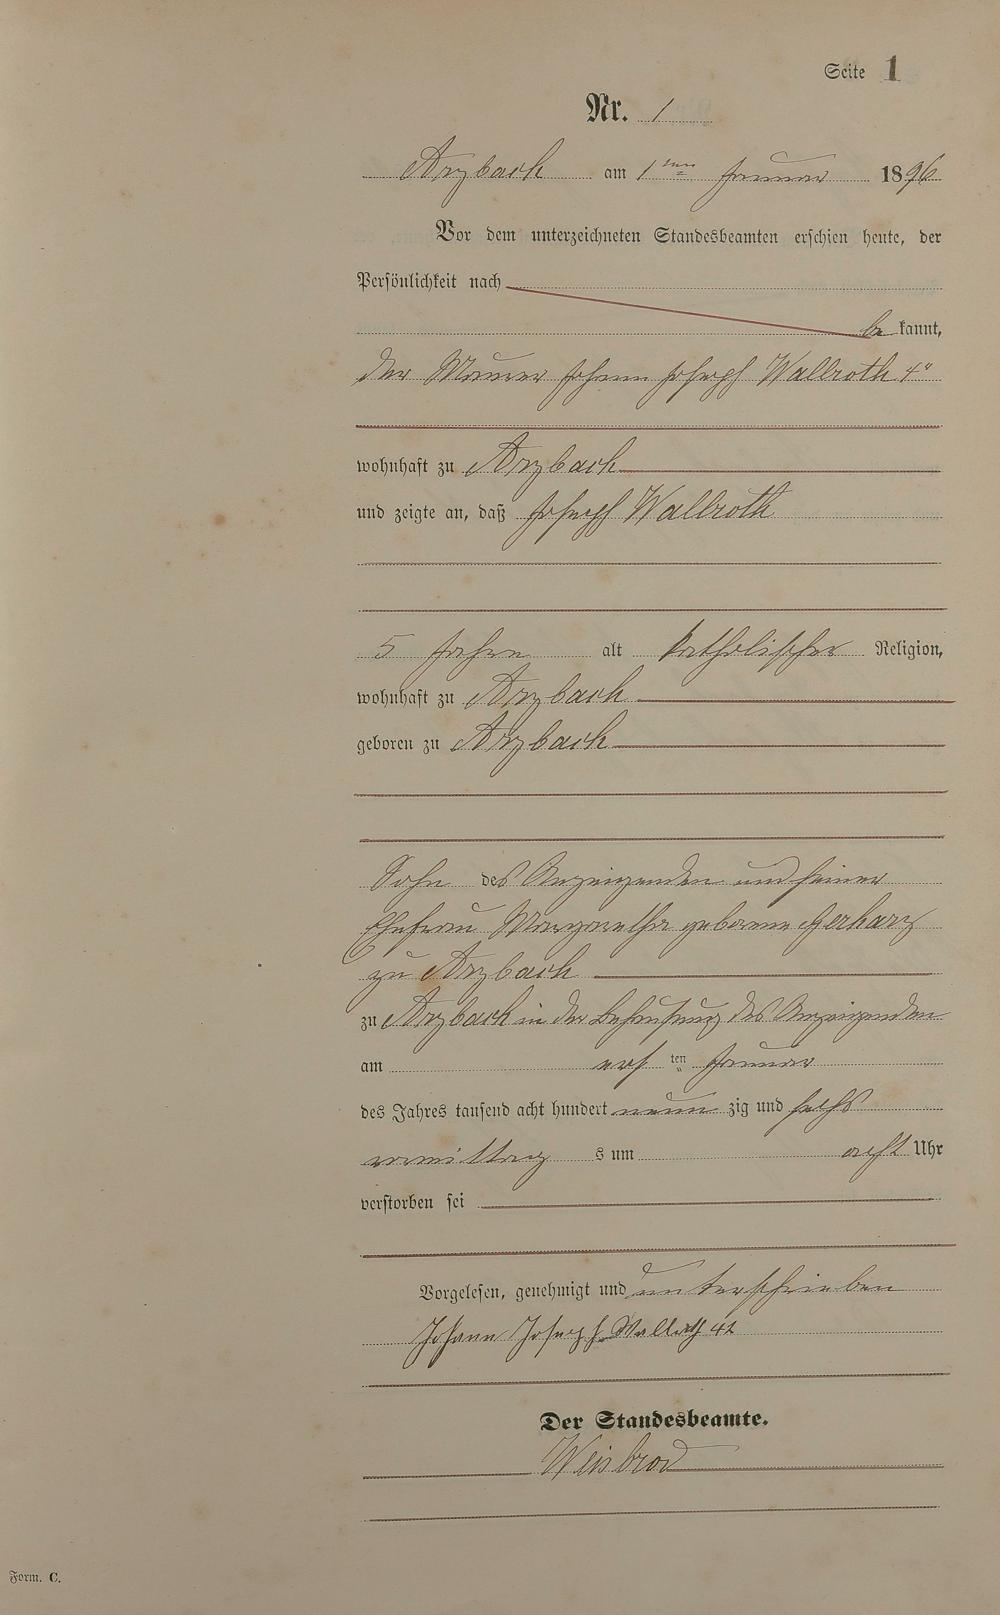 Seite 1
Nr. 1
Arzbach am 1ten Januar 1896
Vor dem unterzeichneten Standesbeamten erschien heute, der
Persönlichkeit nach
bekannt,
der Maurer Johann Joseph Wallroth 4"
wohnhaft zu Arzbach
und zeigte an, daß Joseph Wallroth
5 Jahre alt katholischer Religion,
wohnhaft zu Arzbach
geboren zu Arzbach
Sohn des Anzeigenden und seiner
Ehefrau Margaretha geborene Gerharz
zu Arzbach
zu Arzbach in der Behausung des Anzeigenden
am ersten Januar
des Jahres tausend acht hundert neunzig und sechs
vormittags um acht Uhr
verstorben sei
Vorgelesen, genehmigt und unterschrieben
Johann Joseph Wallroth
Der Standesbeamte.
Weisbrod
Form. C.